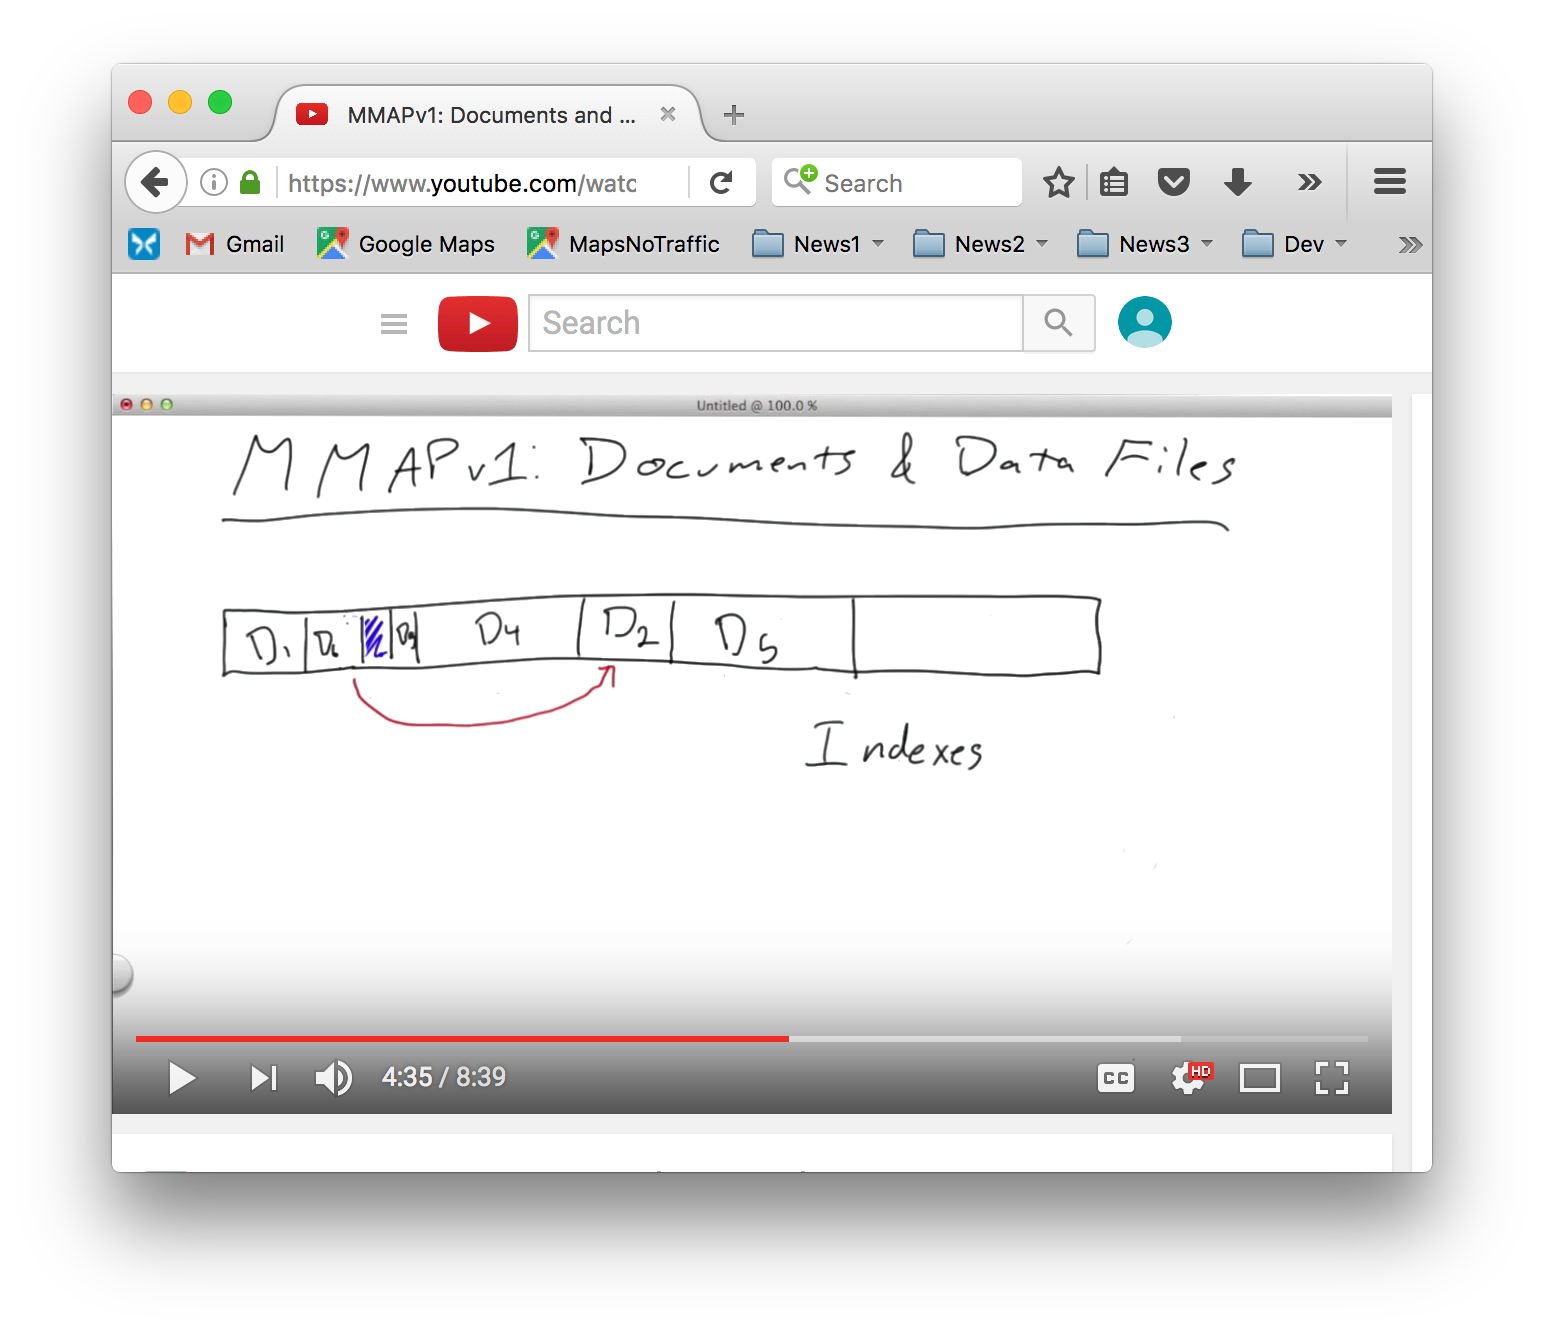 MMAPv1: Documents and ...
https://www.youtube.com/watc
Search
Gmail
Google Maps
MapsNoTraffic
News1
News2
News3
Dev
Search
Untitled @ 100.0 %
MMAPv1: Documents & Data Files
D1 D2 D3 D4 D2 D5
Indexes
4:35 / 8:39
CC
HD